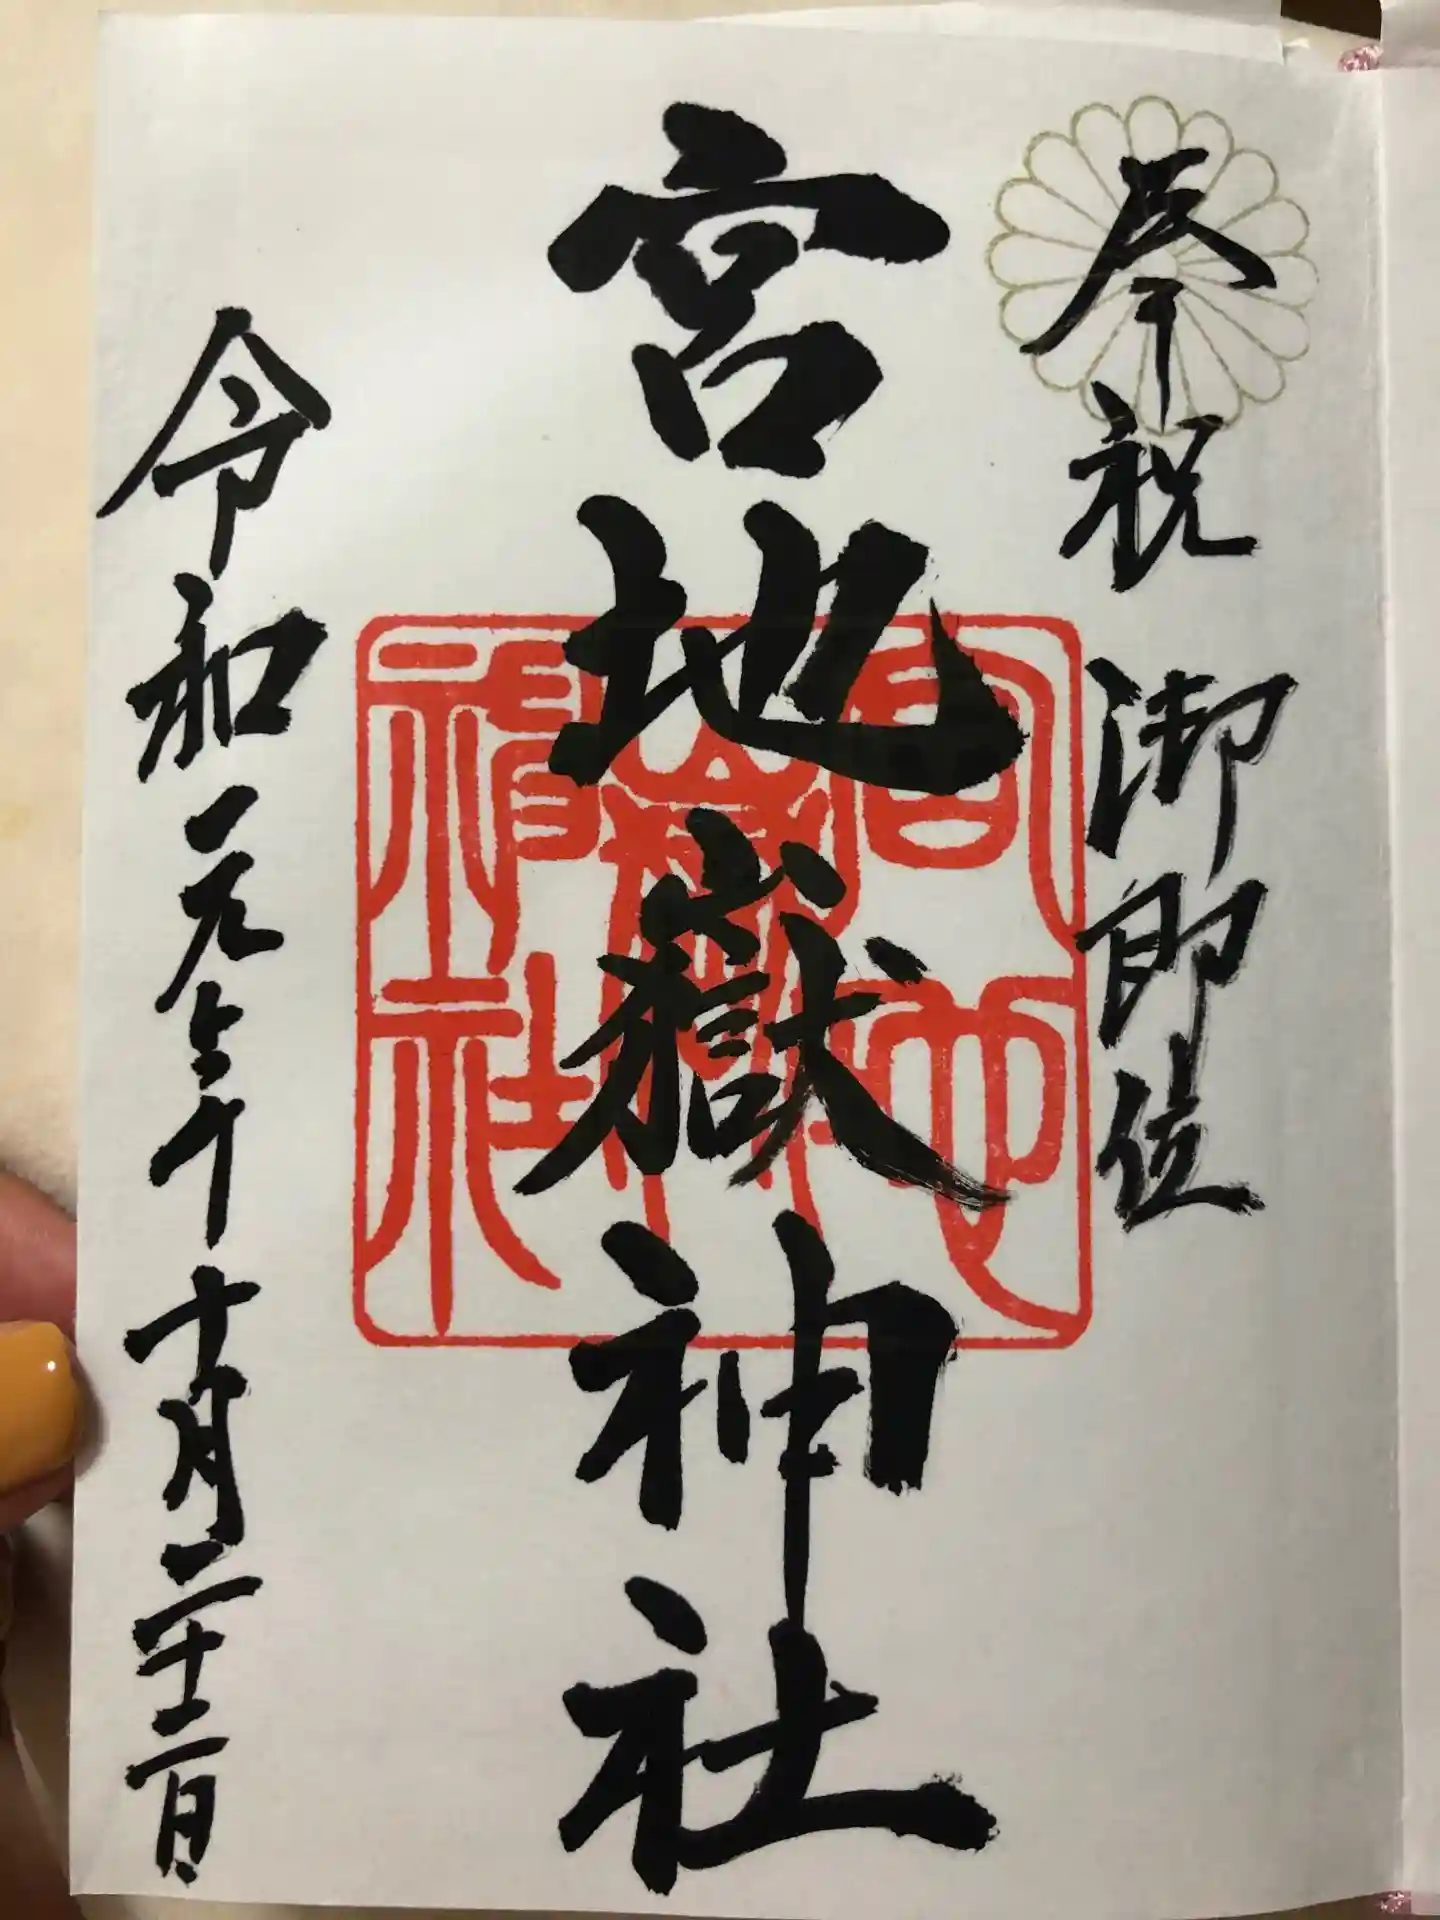 奉祝 御即位
宮地嶽神社
宮地嶽神社
令和元年十月二十二日